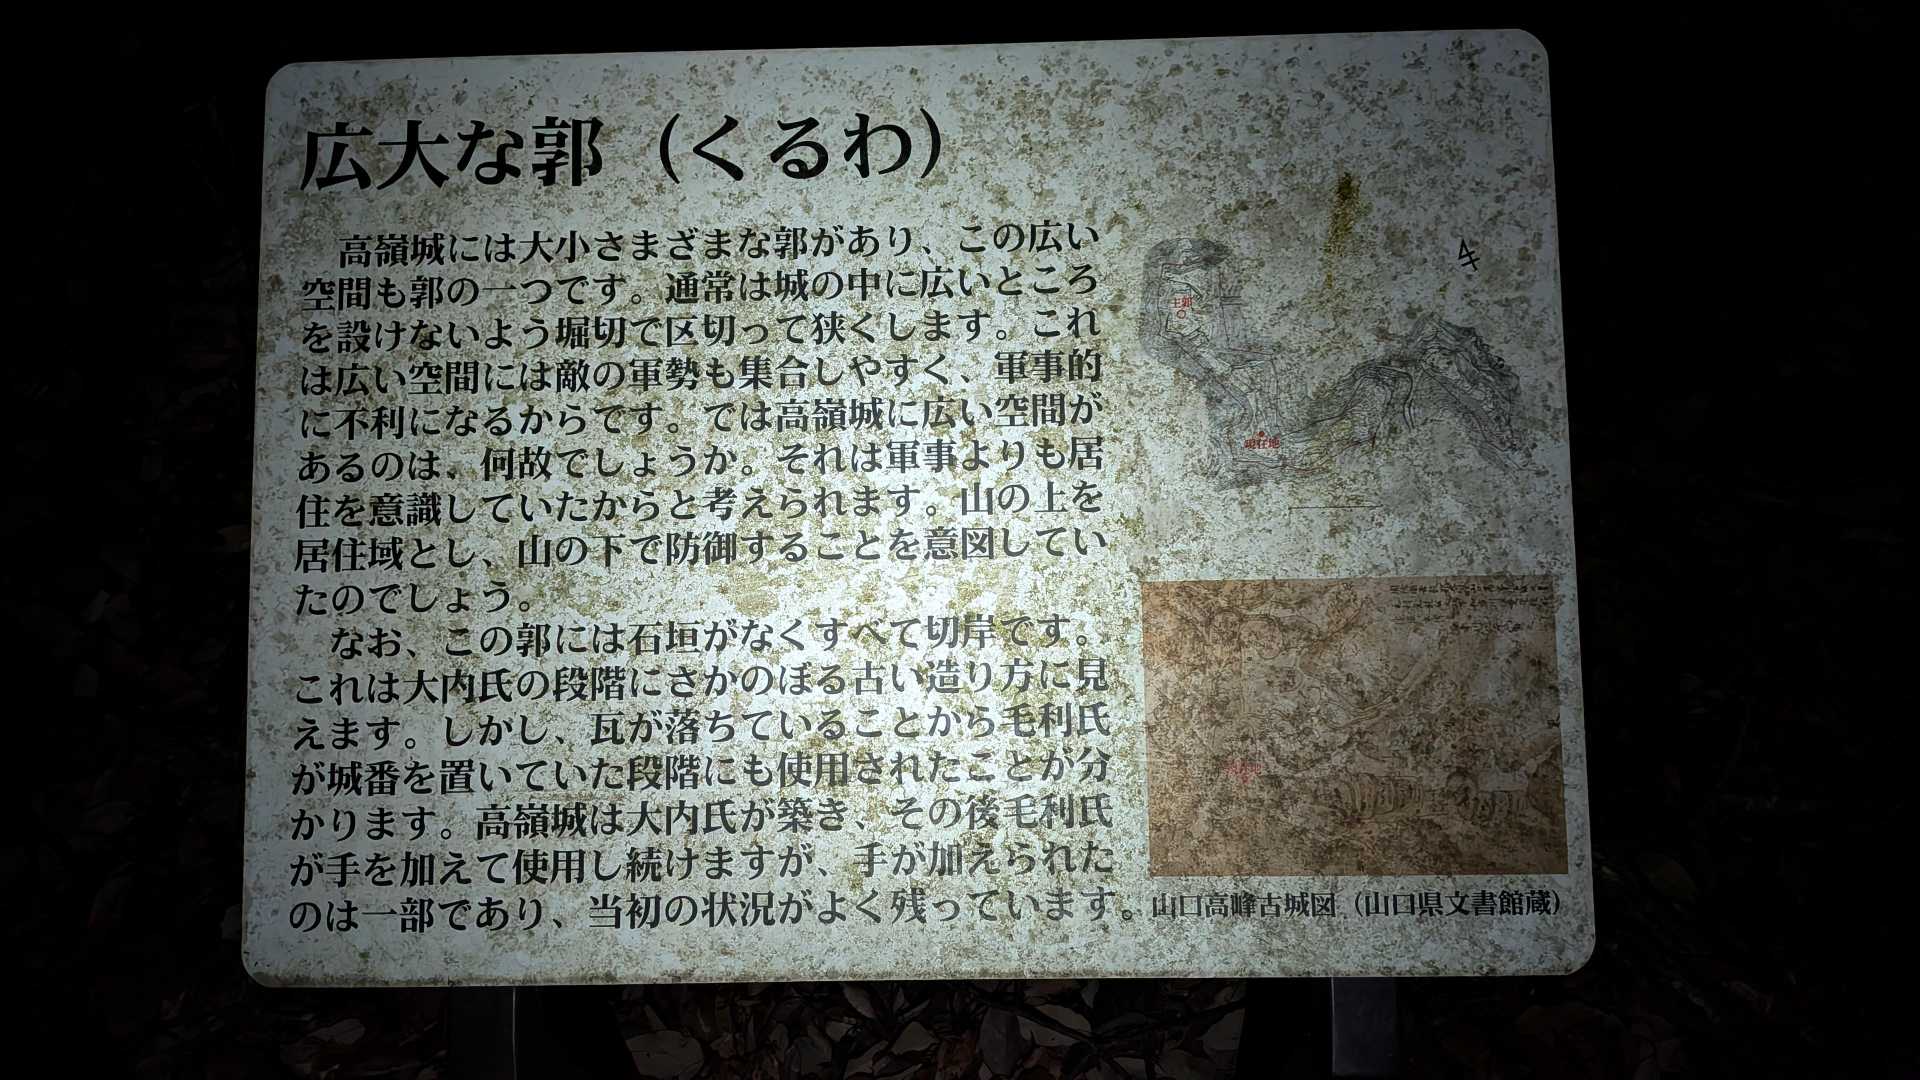 広大な郭（くるわ）
高嶺城には大小さまざまな郭があり、この広い
空間も郭の一つです。通常は城の中に広いところ
を設けないよう堀切で区切って狭くします。これ
は広い空間には敵の軍勢も集合しやすく、軍事的
に不利になるからです。では高嶺城に広い空間が
あるのは、何故でしょうか。それは軍事よりも居
住を意識していたからと考えられます。山の上を
居住域とし、山の下で防御することを意図してい
たのでしょう。
なお、この郭には石垣がなくすべて切岸です。
これは大内氏の段階にさかのぼる古い造り方に見
えます。しかし、瓦が落ちていることから毛利氏
が城番を置いていた段階にも使用されたことが分
かります。高嶺城は大内氏が築き、その後毛利氏
が手を加えて使用し続けますが、手が加えられた
のは一部であり、当初の状況がよく残っています。
主郭
現在地
山口高峰古城図（山口県文書館蔵）